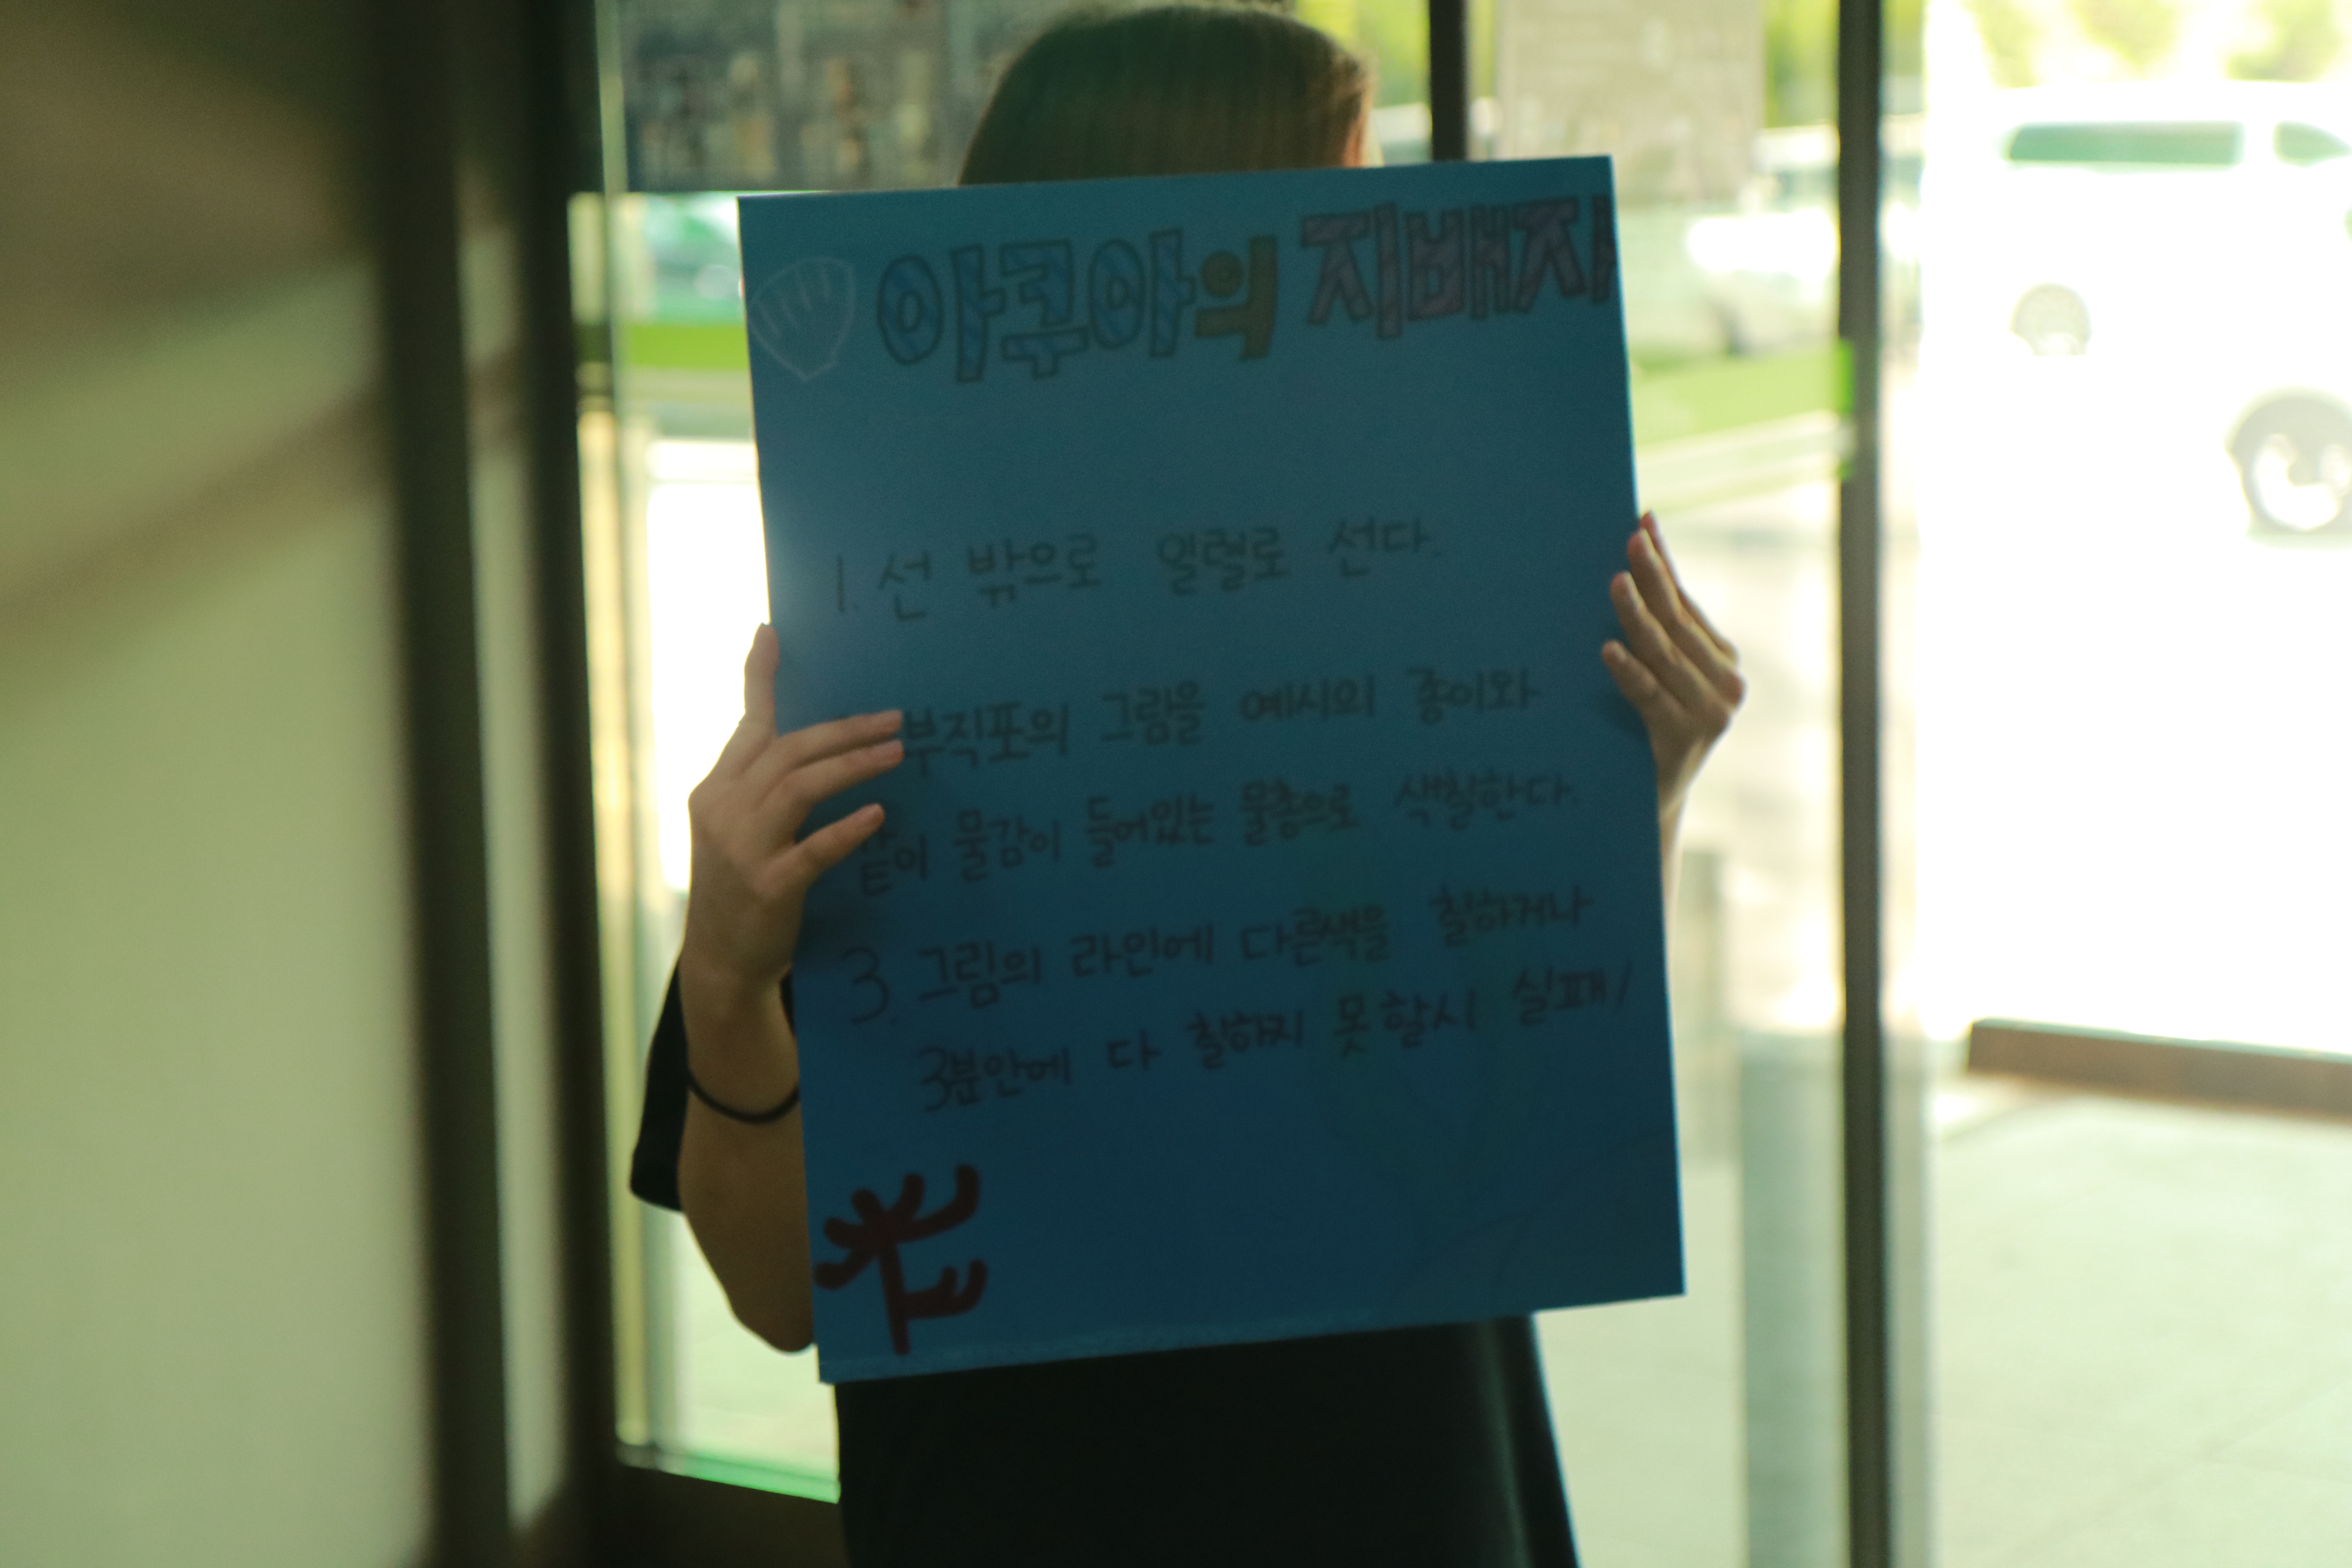 아쿠아의 지배자
1. 선 밖으로 일렬로 선다.
부직포의 그림을 예시의 종이와
같이 물감이 들어있는 물총으로 색칠한다.
3. 그림의 라인에 다른색을 칠하거나
3분안에 다 칠하지 못할시 실패/